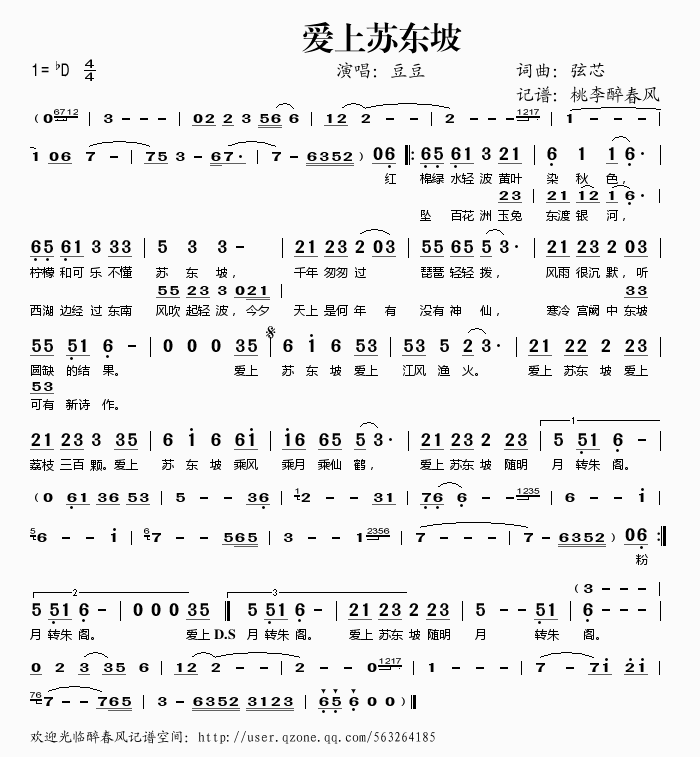 爱上苏东坡
1=♭D 4/4 演唱：豆豆 词曲：弦芯
记谱：桃李醉春风
（0 6712 | 3 - - - | 02 2 3 566 | 12 2 - - | 2 - - 1217 | 1 - - - |
1 06 7 - | 75 3 - 67· | 7 - 6352 ）06 |: 65 61 3 21 | 6 1 1 6· |
红 棉绿 水轻 波 黄叶 染 秋 色，
23 | 21 12 1 6· |
坠 百花 洲 玉兔 东渡 银 河，
65 61 3 33 | 5 3 3 - | 21 23 2 03 | 55 65 5 3· | 21 23 2 03 |
柠檬 和可 乐 不懂 苏 东 坡， 千年 匆匆 过 琵琶 轻轻 拨， 风雨 很沉 默，听
55 23 3 021 | 33
西湖 边经 过 东南 风吹 起轻 波，今夕 天上 是何 年 有 没有 神 仙， 寒冷 宫阙 中 东坡
55 51 6 - | 0 0 0 35 | 6 i 6 53 | 53 5 2 3· | 21 22 2 23 |
圆缺 的结 果。 爱上 苏 东 坡 爱上 江风 渔 火。 爱上 苏东 坡 爱上
53
可有 新诗 作。
21 23 3 35 | 6 i 6 6i | i6 65 5 3· | 21 23 2 23 | 1 5 51 6 - |
荔枝 三百 颗。爱上 苏 东 坡 乘风 乘月 乘仙 鹤， 爱上 苏东 坡 随明 月 转朱 阁。
（0 61 36 53 | 5 - - 36 | 1 2 - - 31 | 76 6 - - 1235 | 6 - - i |
5 6 - - i | 6 7 - - 565 | 3 - - 1 2356 | 7 - - - | 7 - - 6352 ）06 :|
粉
2 3 （3 - - - |
5 51 6 - | 0 0 0 35 || 5 51 6 - | 21 23 2 23 | 5 - - 51 | 6 - - - |
月 转朱 阁。 爱上 D.S 月 转朱 阁。 爱上 苏东 坡 随明 月 转朱 阁。
0 2 3 35 6 | 12 2 - - | 2 - - 0 1217 | 1 - - - | 7 - 7i 2i |
76 7 - - 765 | 3 - 6352 3123 | 65 6 0 0 ）||
欢迎光临醉春风记谱空间：http://user.qzone.qq.com/563264185